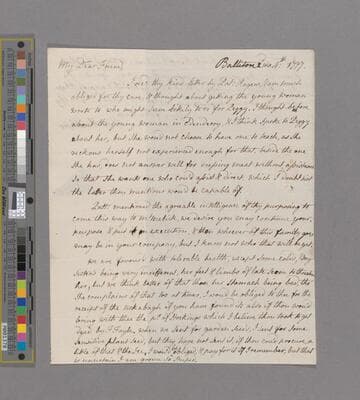 My Dear Friend Ballitore 4th 1797
I rec'd thy kind letter by Pat. Rogers, I am much
obliged for thy care & thought about getting the young woman
wrote to who might seem likely to do for Peggy. I thought before
about the young woman in Dunleary & I think spoke to Peggy
about her, but she would not choose to have one to teach, as she
reckons herself not experienced enough for that, beside the one
she has does not answer well for cutting out without assistance
so that she wants one who could assist & direct which I doubt not
the latter thou mentions would be capable of.
Patt mentioned the agreeable intelligence of thy purposing to
come this way to we desire you may continue your
purpose & put it in execution, & thou whoever of thy family you
may be in your company, but I know not who that will be yet,
We are favour'd with tolerable health, except some colds, my
Sister's being very her feet & limbs of late seem to threaten
her, but we think better of that than her stomach being bad tho'
she complains of that too at times, I would be obliged to thee for the
receipt of the if you have found it also if thou would
bring with thee the pr. of Stockings which I believe thou took to get
dyed by J. when we sent for garden seeds, I sent for some
sensitive plant seed, but they have not sent it, if thou could procure a
little of that & the I would be obliged, & pay for it if I remember, but that
is uncertain I am grown so stupid.